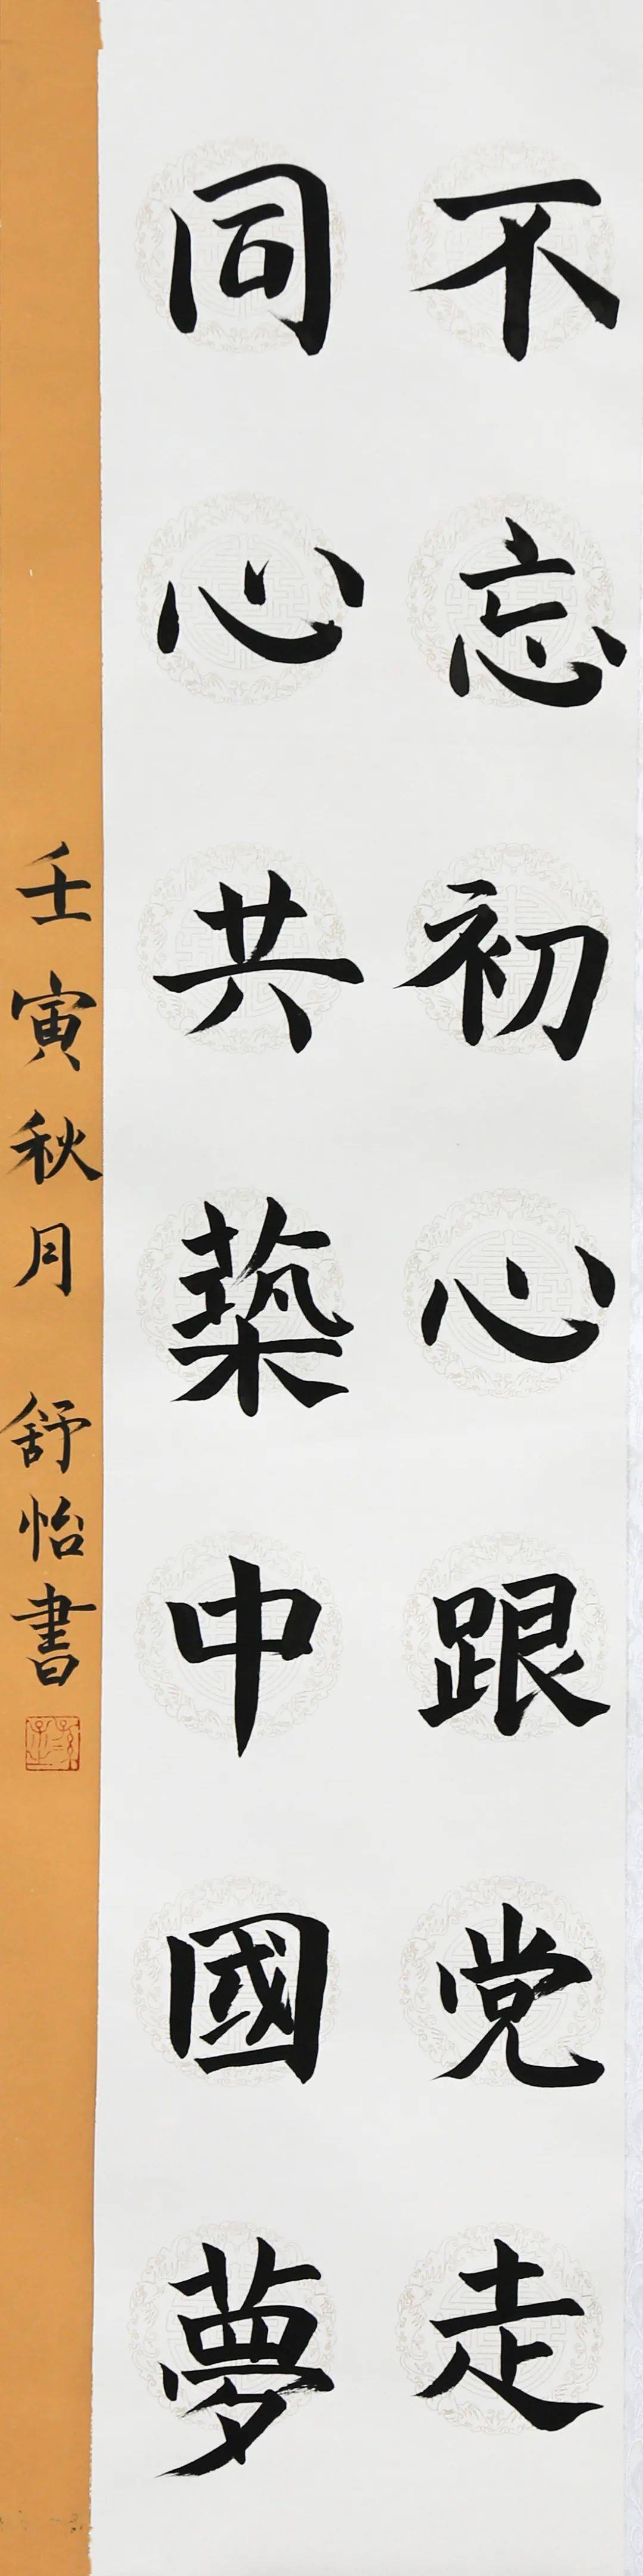 不忘初心跟党走
同心共築中國夢
壬寅秋月 舒怡書